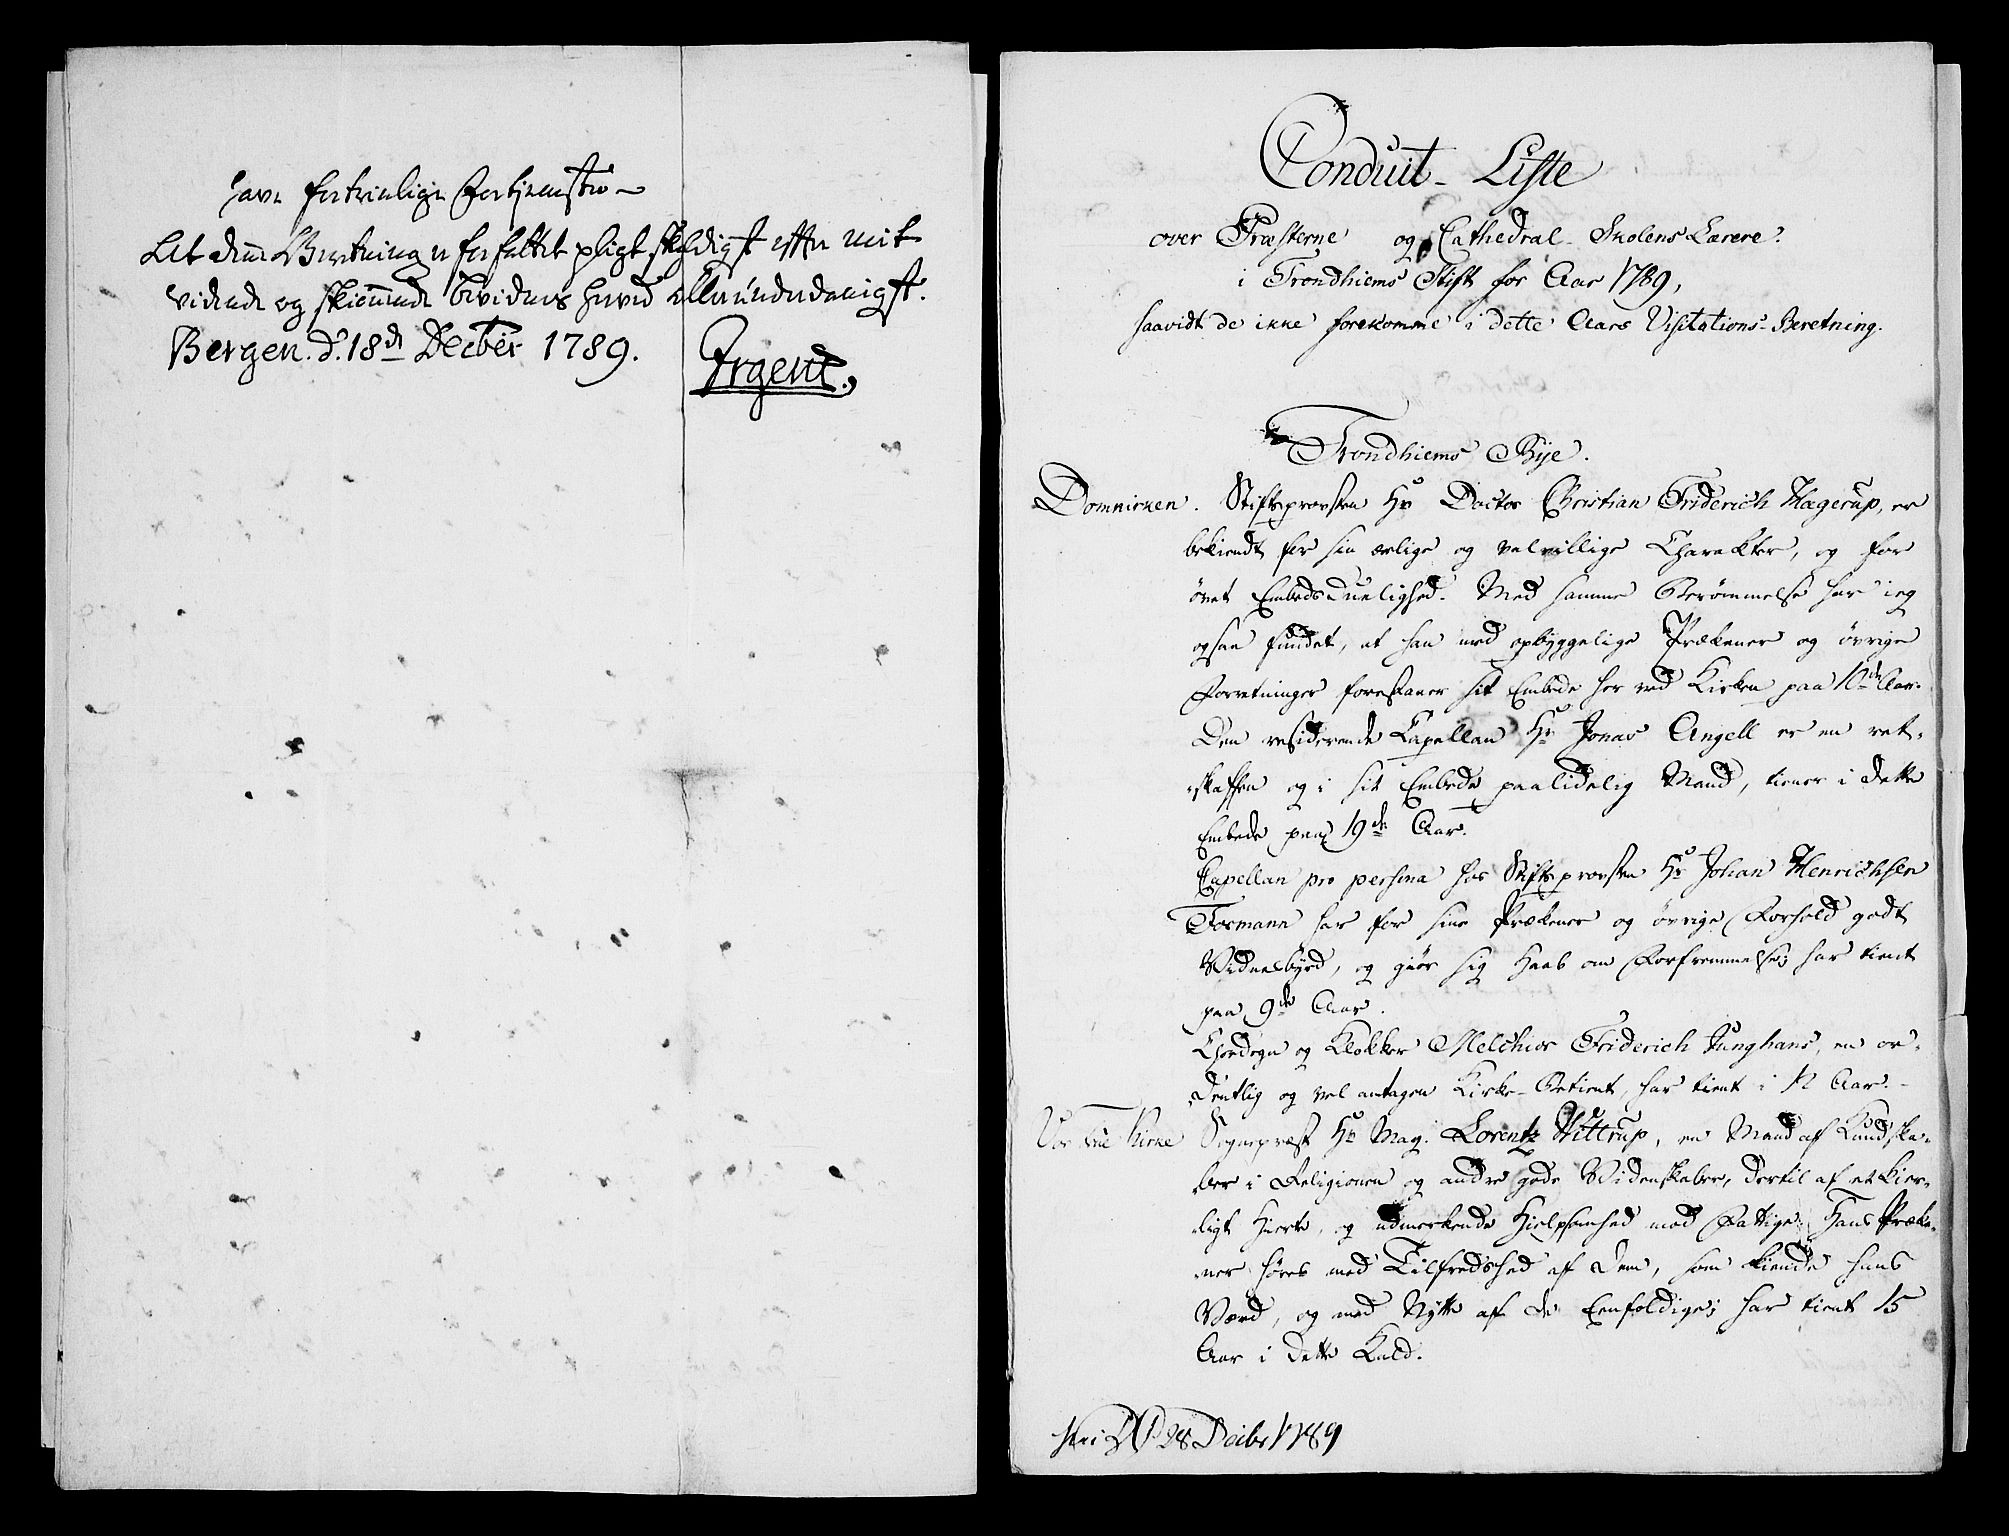 have fortrinlige Fortienester
At denne Beretning er forfattet pligtskyldigst efter mit
vidende og skiønnende bevidnes herved allerunderdanigst.
Bergen. d. 18de Decbr 1789. Irgens.
Conduit- Liste
over Præsterne og Cathedral-Skolens Lærere
i Trondhiems Stift for Aar 1789,
saavidt de ikke forekomme i dette Aars Visitations-Beretning.
Trondhiems Bye.
Domkirken. Stiftsprovsten Hr Doctor Christian Friderich Hagerup, er
bekiendt for sin ærlige og velvillige Charakter, og for
øvet Embeds Duelighed. Med samme Berømmelse har ieg
ogsaa fundet, at han med opbyggelige Prækener og øvrige
Forretninger forestaaer sit Embede her ved Kirken paa 10de Aar.
Den residerende Capellan Hr Jonas Angell er en ret-
skaffen og i sit Embede paalidelig Mand, tiener i dette
Embede paa 19de Aar.
Capellan pro persona hos Stiftsprovsten Hr Johan Henrichsen
Tormann har for sine Prækener og øvrige Forhold godt
Vidnesbyrd, og giør sig Haab om Forfremmelse; har tient
paa 9de Aar.
Chordegn og Klokker Melchior Friderich Junghans, en or-
dentlig og vel antagen Kirke-Betient, har tient i 12 Aar.
Vor Frue Kirke Sognepræst Hr Mag. Lorentz Wittrup, en Mand af Kundska-
ber i Religionen og andre gode Videnskaber, dertil af et kier-
ligt Hierte, og udmerkende Hielpsomhed mod Fattige. Hans Præke-
ner høres med Tilfredshed af dem, som kiende hans
Værd, og med Nytte af de Eenfoldige; har tient 15
Aar i dette Kald.
28 Decbr 1789